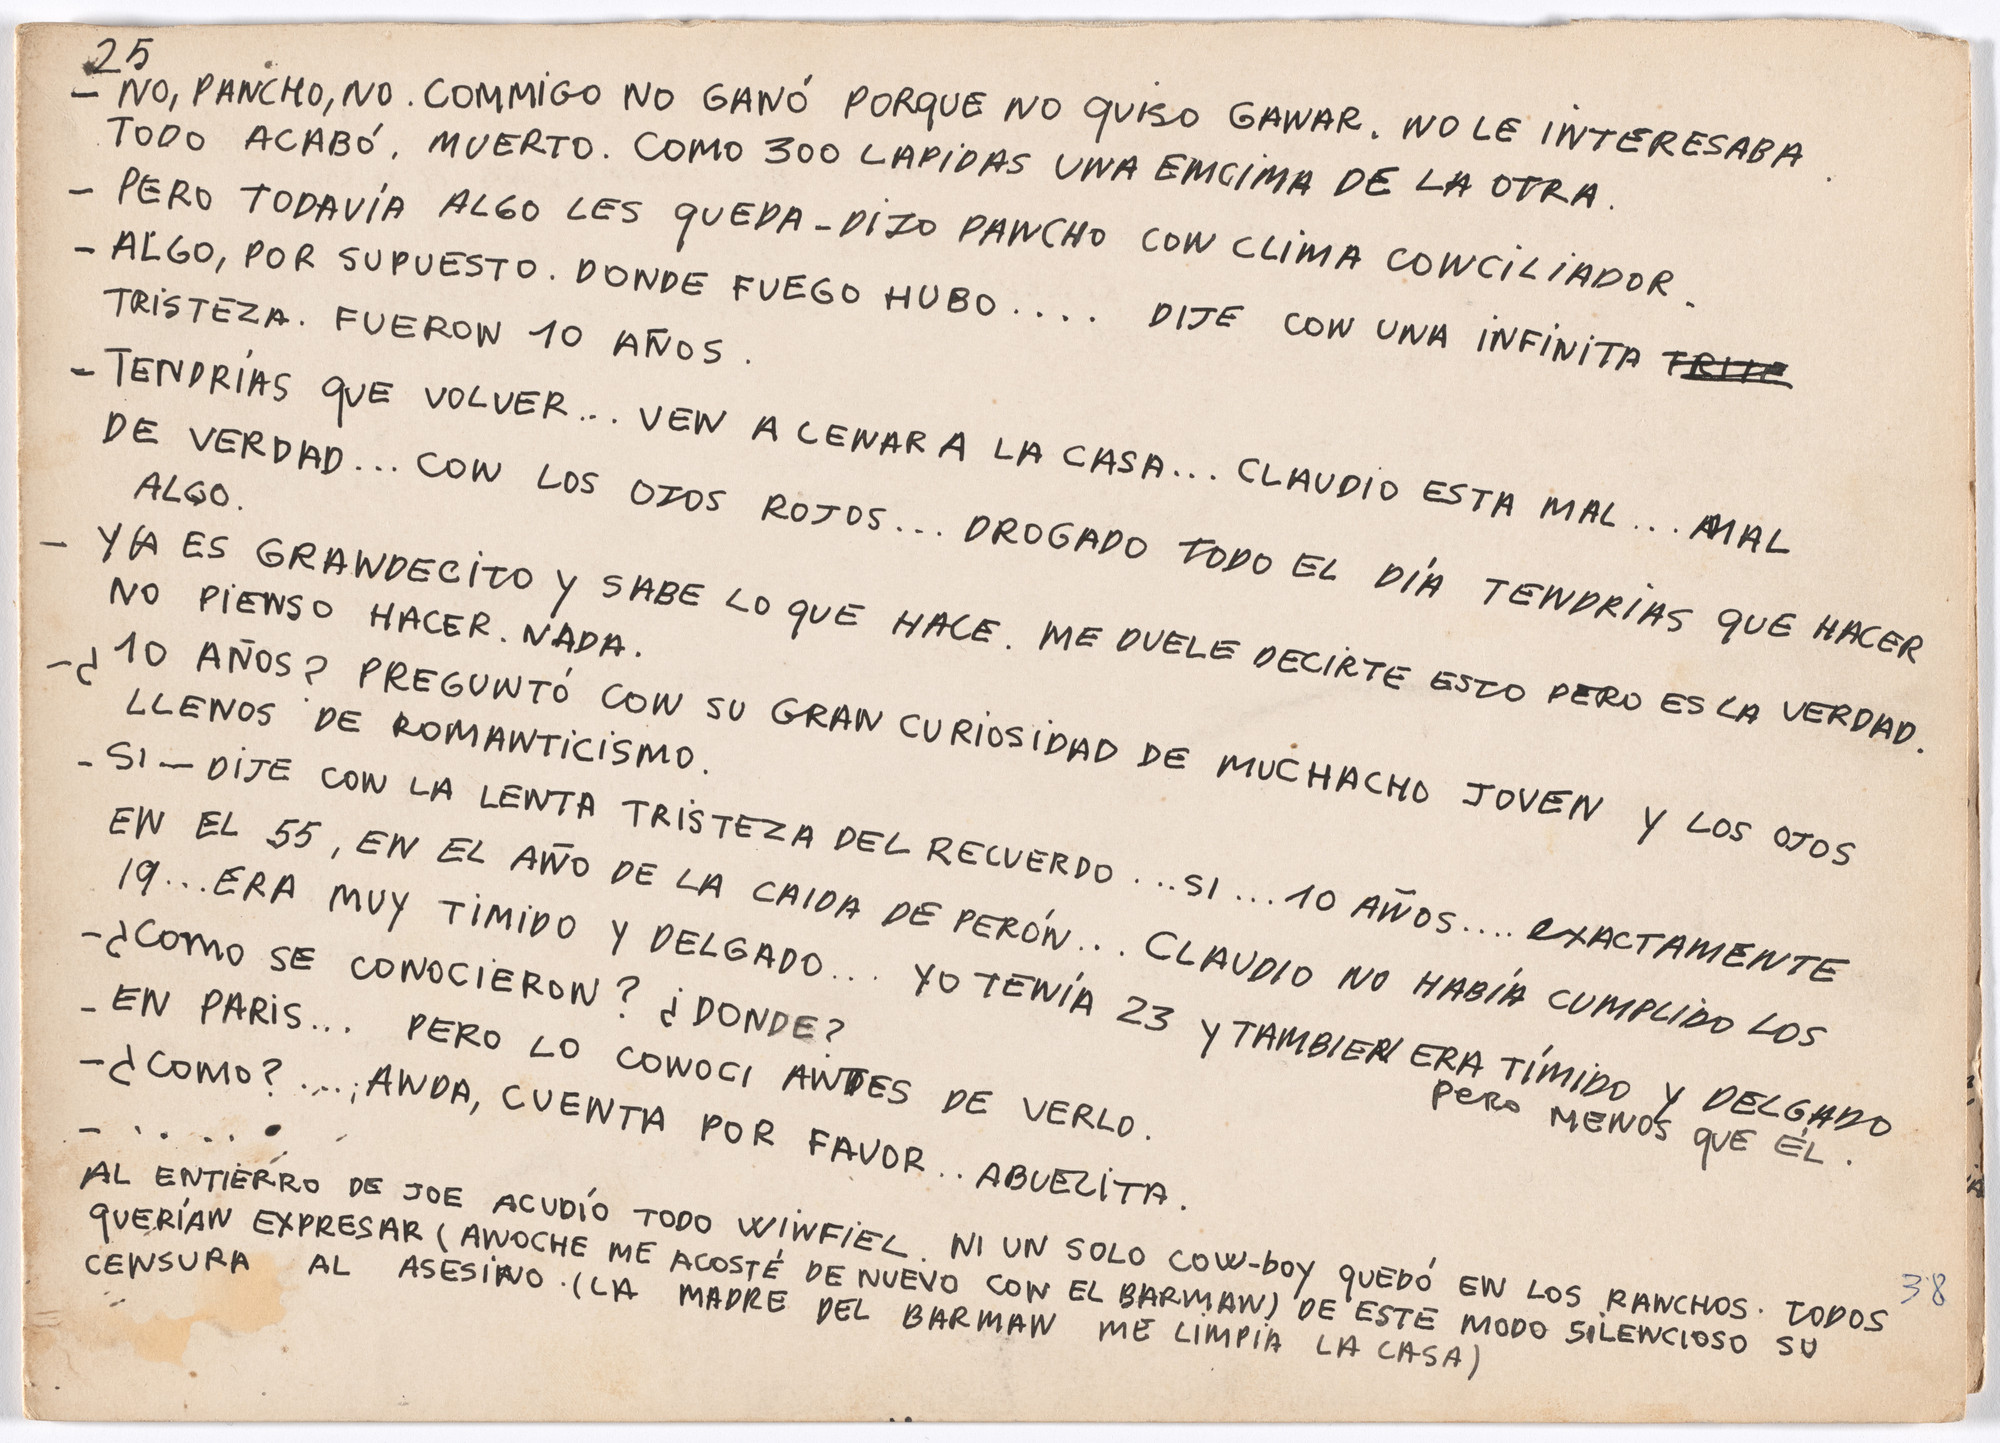 25
– NO, PANCHO, NO. COMMIGO NO GANÓ PORQUE NO QUISO GANAR. NO LE INTERESABA.
TODO ACABÓ. MUERTO. COMO 300 LAPIDAS UNA EMCIMA DE LA OTRA.
– PERO TODAVÍA ALGO LES QUEDA – DIJO PANCHO CON CLIMA CONCILIADOR.
– ALGO, POR SUPUESTO. DONDE FUEGO HUBO.... DIJE CON UNA INFINITA
TRISTEZA. FUERON 10 AÑOS.
– TENDRÍAS QUE VOLVER... VEN A CENAR A LA CASA... CLAUDIO ESTA MAL... MAL
DE VERDAD... CON LOS OJOS ROJOS... DROGADO TODO EL DÍA TENDRÍAS QUE HACER
ALGO.
– YA ES GRANDECITO Y SABE LO QUE HACE. ME DUELE DECIRTE ESTO PERO ES LA VERDAD.
NO PIENSO HACER. NADA.
– ¿10 AÑOS? PREGUNTÓ CON SU GRAN CURIOSIDAD DE MUCHACHO JOVEN Y LOS OJOS
LLENOS DE ROMANTICISMO.
– SI – DIJE CON LA LENTA TRISTEZA DEL RECUERDO... SI... 10 AÑOS.... EXACTAMENTE
EN EL 55, EN EL AÑO DE LA CAIDA DE PERÓN... CLAUDIO NO HABÍA CUMPLIDO LOS
19... ERA MUY TIMIDO Y DELGADO... YO TENÍA 23 Y TAMBIEN ERA TÍMIDO Y DELGADO
PERO MENOS QUE ÉL.
– ¿COMO SE CONOCIERON? ¿DONDE?
– EN PARIS... PERO LO CONOCI ANTES DE VERLO.
– ¿COMO? ...; ANDA, CUENTA POR FAVOR.. ABUELITA.
– .....
AL ENTIERRO DE JOE ACUDÍO TODO WINFIEL. NI UN SOLO COW-BOY QUEDÓ EN LOS RANCHOS. TODOS
QUERÍAN EXPRESAR (ANOCHE ME ACOSTÉ DE NUEVO CON EL BARMAN) DE ESTE MODO SILENCIOSO SU
CENSURA AL ASESINO. (LA MADRE DEL BARMAN ME LIMPIA LA CASA)
38